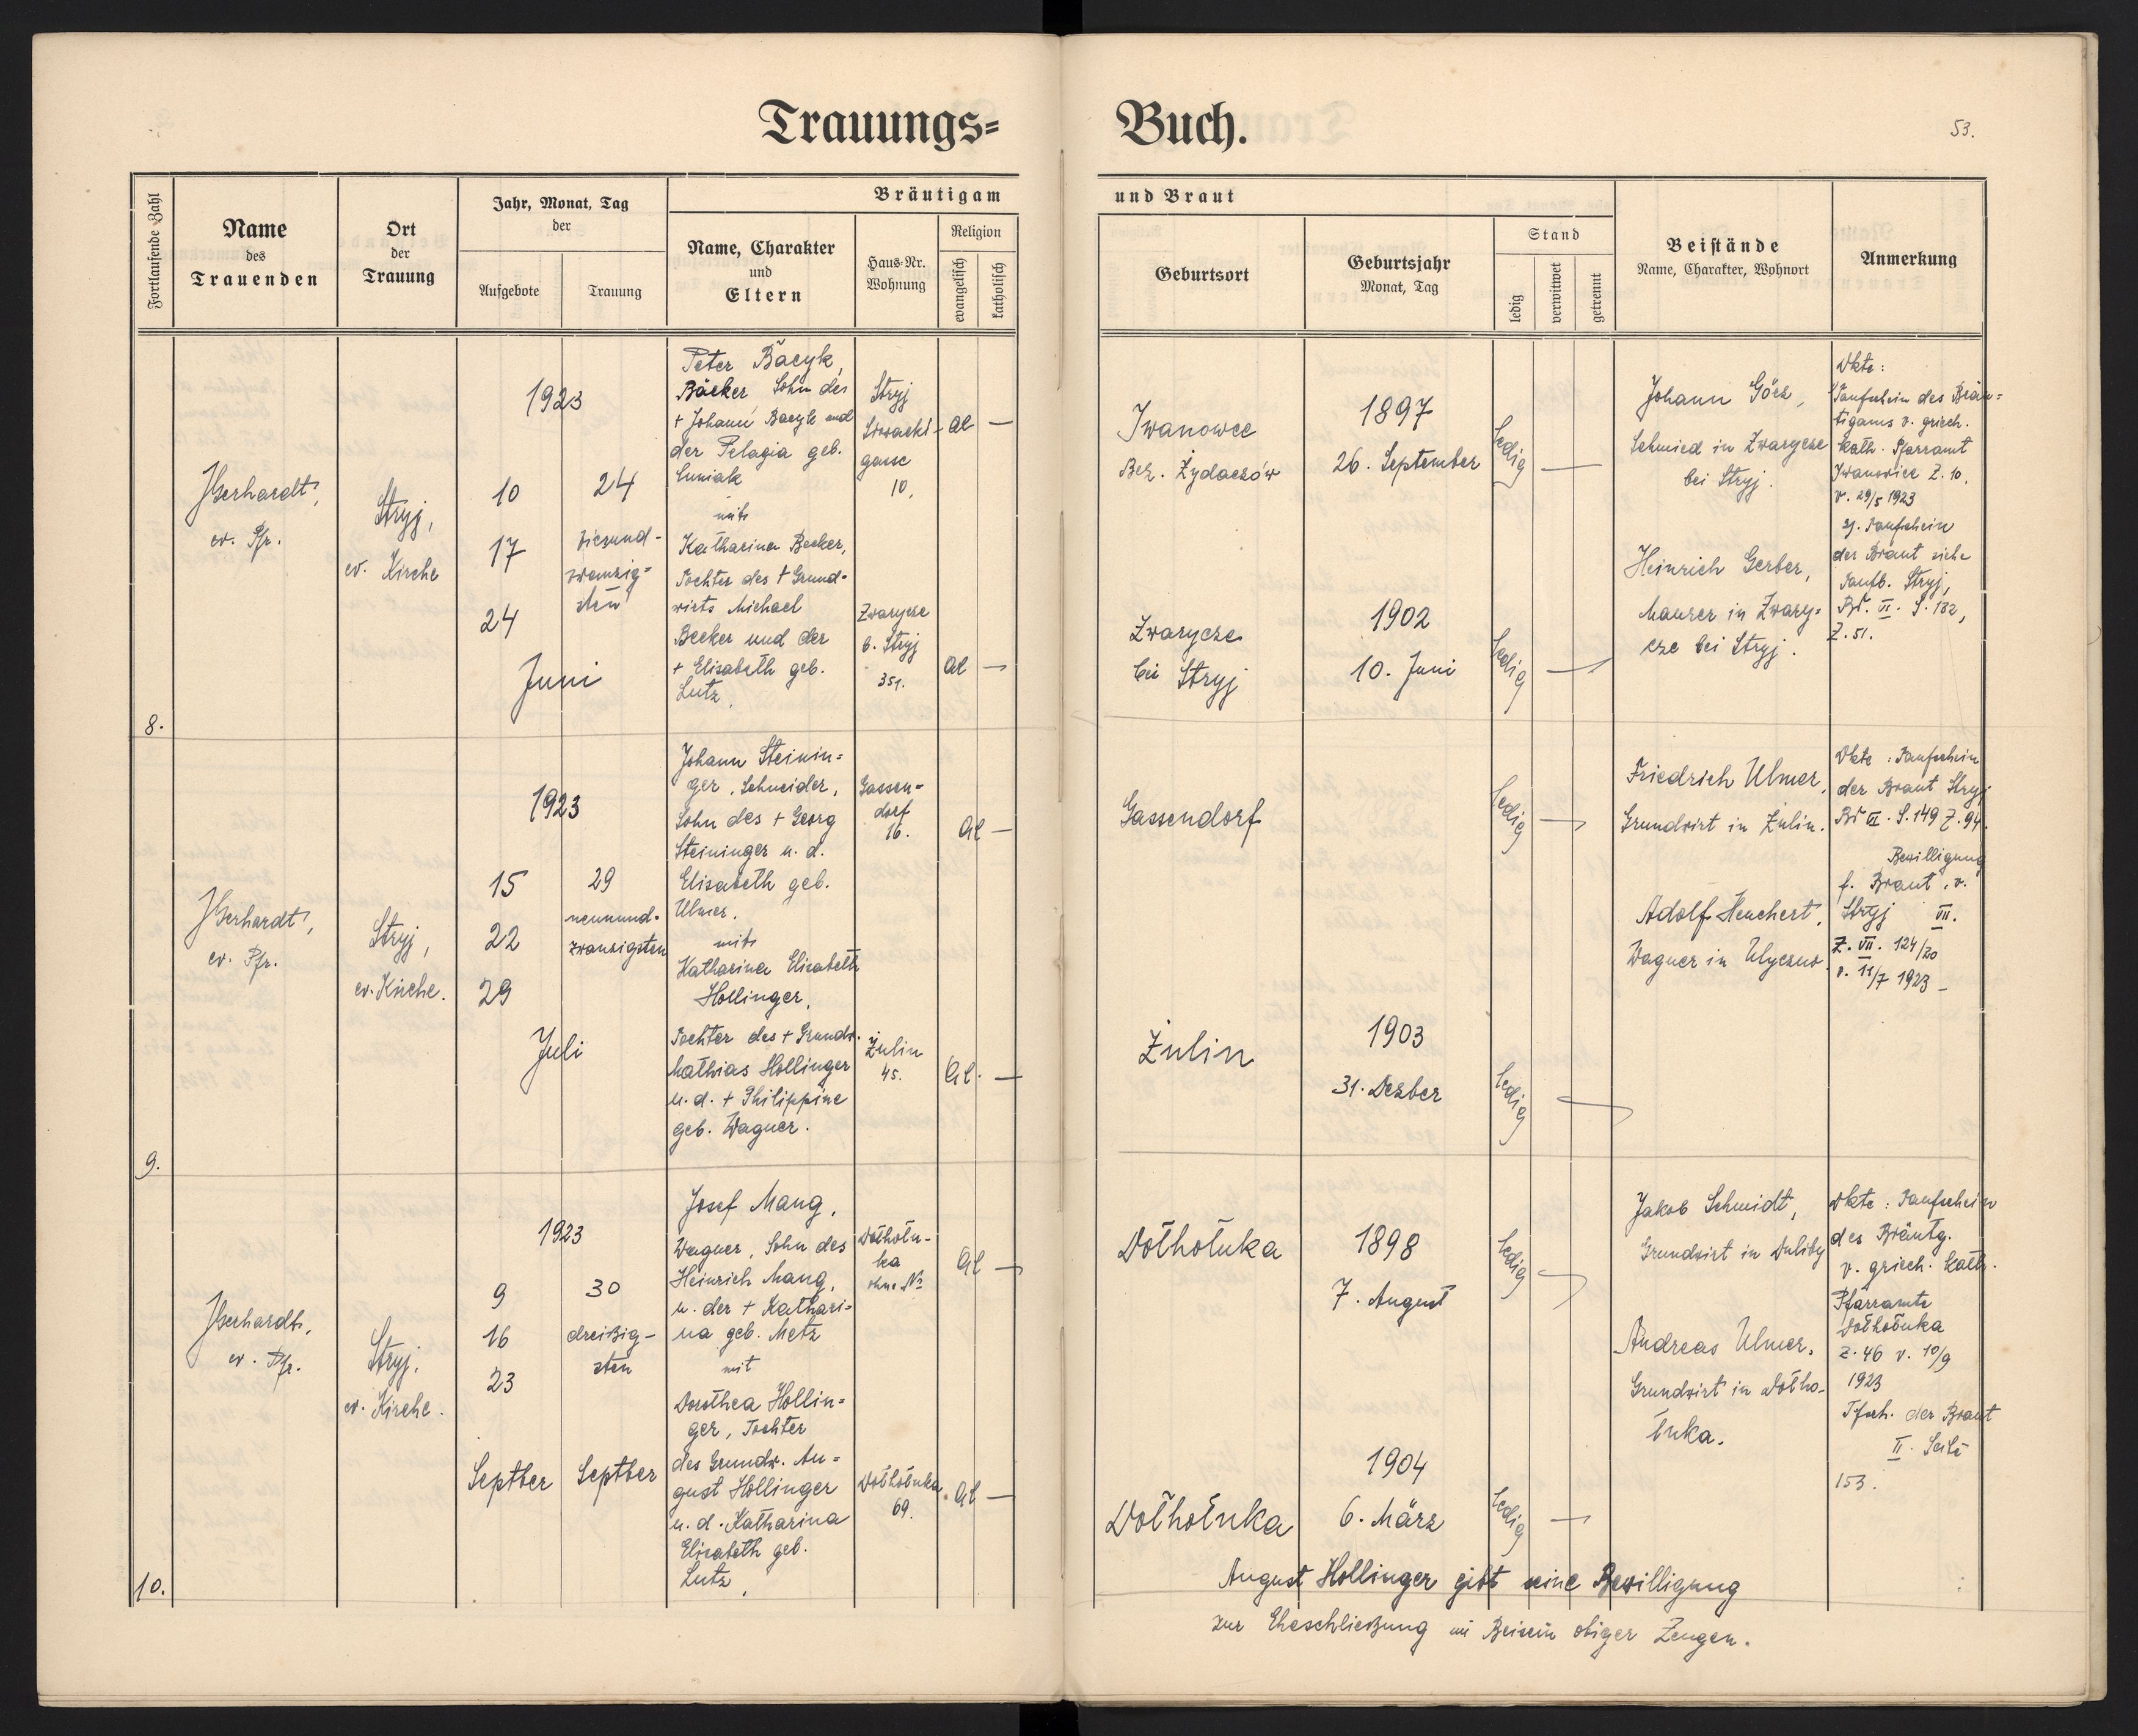 Trauungs=
Buch.
53.
Fortlaufende Zahl
Name
des
Trauenden
Ort
der
Trauung
Jahr, Monat, Tag
der
Aufgebote
Trauung
Bräutigam
Name, Charakter
und
Eltern
Haus-Nr.
Wohnung
Religion
evangelisch
katholisch
und Braut
Geburtsort
Geburtsjahr
Monat, Tag
Stand
ledig
verwitwet
getrennt
Beistände
Name, Charakter, Wohnort
Anmerkung
8.
ev. Pfr.
Stryj,
ev. Kirche
1923
10
17
24
24
vierund-
zwanzig=
sten
Juni
Peter Bacyk,
Bäcker Sohn des
+ Johann Bacyk und
der Pelagia geb.
mit
Katharina Becker,
Tochter des + Grund-
wirts Michael
Becker und der
+ Elisabeth geb.
Lutz.
Stryj
gasse
10.
Zwarycze
b. Stryj
351.
AC —
AC —
Iwanowce
Bez. Żydaczów
1897
26. September
ledig
Zwarycze
bei Stryj
1902
10. Juni
ledig
Johann Görz,
Schmied in Zwarycze
bei Stryj.
Heinrich Gerber,
Maurer in Zwary=
cze bei Stryj.
Dkte:
Taufschein des Bräu=
tigams v. griech.
kath. Pfarramt
Iwanowice Z. 10.
v. 29/5 1923
Taufschein
der Braut siehe
Taufb. Stryj,
Bd. VI. S. 132,
Z. 51.
9.
ev. Pfr.
Stryj,
ev. Kirche.
1923
15
22
29
29
neunund-
zwanzigsten
Juli
Johann Steinin=
ger, Schneider,
Sohn des + Georg
Steininger u. d.
Elisabeth geb.
Ulmer.
mit
Katharina Elisabeth
Hollinger,
Tochter des + Grundw.
Mathias Hollinger
u. d. + Philippine
geb. Wagner.
Gassen=
dorf
16.
Żulin
45.
AC —
AC. —
Gassendorf
ledig
Żulin
1903
31. Dezber
ledig
Friedrich Ulmer,
Grundwirt in Żulin.
Adolf Heuchert,
Wagner in
Dkte: Taufschein
der Braut Stryj
S. 149 Z. 94.
Bewilligung
f. Braut, v.
Stryj VII.
Z. VII. 124/20
v. 11/7 1923 –
10.
ev. Pfr.
Stryj,
ev. Kirche.
1923
9
16
23
30
dreißig-
sten
Septber
Septber
Josef Mang,
Wagner, Sohn des
Heinrich Mang,
u. der + Kathari=
na geb. Metz
mit
Dorothea Hollin=
ger, Tochter
des Grundw. Au=
gust Hollinger
u. d. Katharina
Elisabeth geb.
Lutz.
Dołhołu-
ka
ohne No
Dołhołuka
69.
AC —
AC —
Dołhołuka
1898
7. August
ledig
Dołhołuka
1904
6. März
ledig
Jakob Schmidt,
Grundwirt in Duliby
Andreas Ulmer,
Grundwirt in Dołho-
łuka.
Dkte: Taufschein
des Bräutg.
v. griech. kath.
Pfarramte
Dołhołuka
Z. 46 v. 10/9
1923
Tfsch. der Braut
II. Seite
153.
August Hollinger gibt seine Bewilligung
zur Eheschließung im Beisein obiger Zeugen.